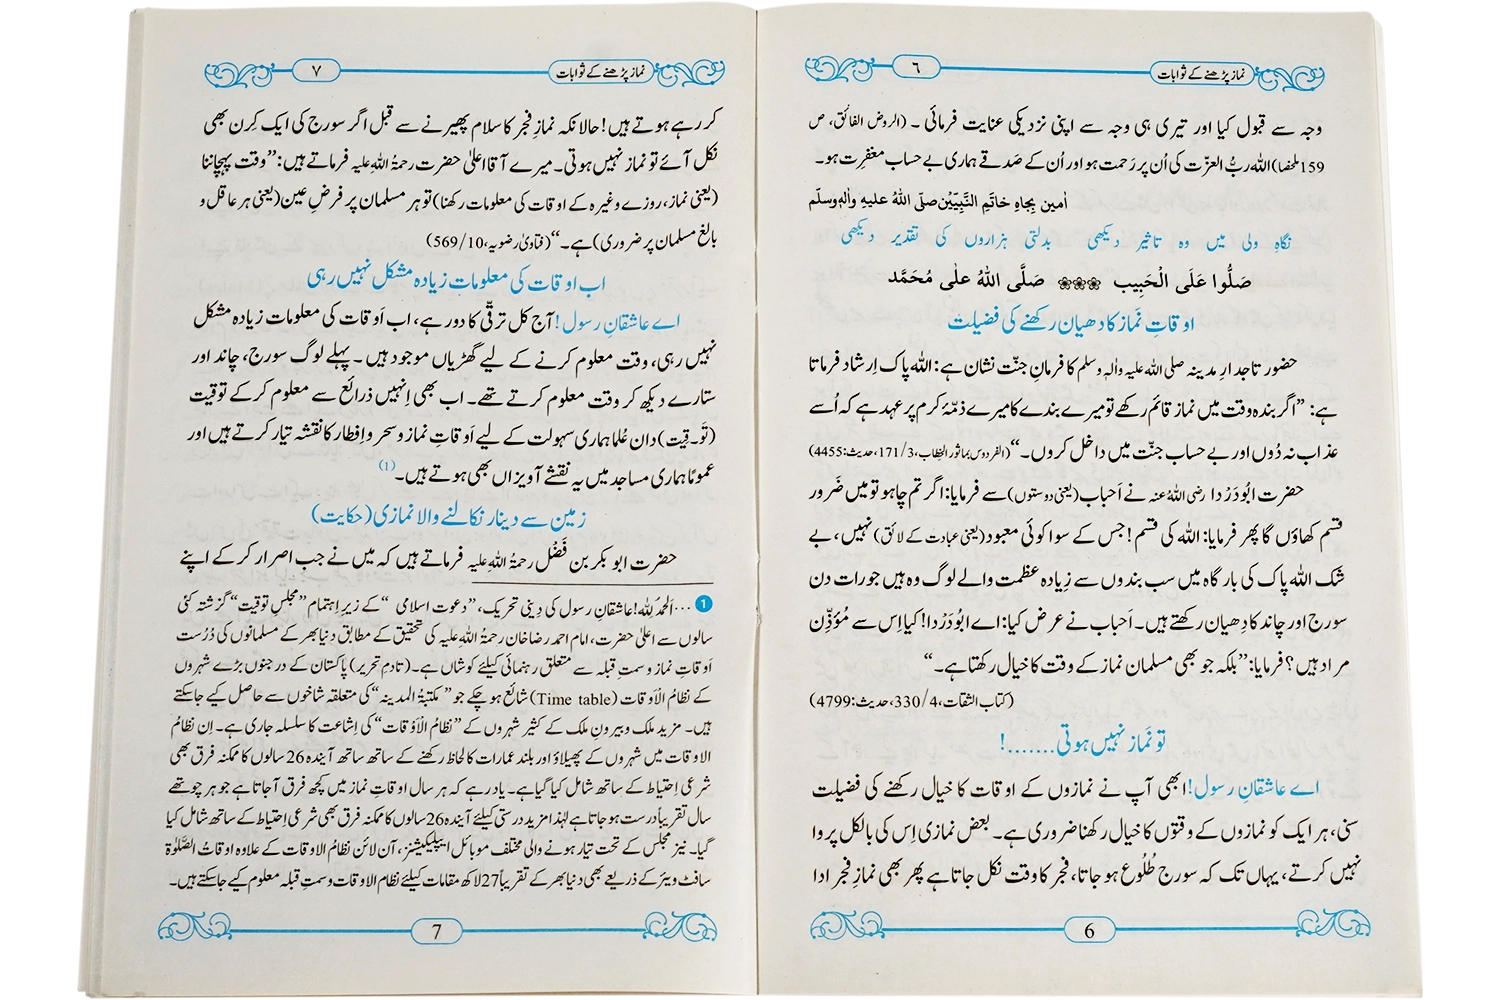 نماز پڑھنے کے ثوابات
٦
وجہ سے قبول کیا اور تیری ہی وجہ سے اپنی نزدیکی عنایت فرمائی ۔ (الروض الفائق، ص
159 ملخصا) اللہ ربُّ العزّت کی اُن پر رَحمت ہو اور اُن کے صَدقے ہماری بے حساب مغفِرت ہو۔
اٰمین بِجاہِ خاتَمِ النَّبِیّٖن صلّی اللہُ علیہِ واٰلہٖ وسلّم
نگاہِ ولی میں وہ تاثیر دیکھی    بدلتی ہزاروں کی تقدیر دیکھی
صَلُّوا عَلَی الْحَبِیب ❀❀❀ صَلَّی اللہُ علٰی مُحَمَّد
اوقاتِ نَماز کا دھیان رکھنے کی فضیلت
حضور تاجدارِ مدینہ صلی اللہ علیہ واٰلہٖ وسلم کا فرمانِ جنّت نشان ہے: اللہ پاک اِرشاد فرماتا
ہے: ”اگر بندہ وقت میں نماز قائم رکھے تو میرے بندے کا میرے ذمّۂ کرم پر عہد ہے کہ اُسے
عذاب نہ دُوں اور بے حساب جنّت میں داخل کروں۔“ (الفردوس بماثور الخطاب، 3/171، حدیث:4455)
حضرت ابُودَرْدا رضی اللہُ عنہ نے اَحباب (یعنی دوستوں) سے فرمایا: اگر تم چاہو تو میں ضَرور
قسم کھاؤں گا پھر فرمایا: اللہ کی قسم! جس کے سوا کوئی معبود (یعنی عبادت کے لائق) نہیں، بے
شک اللہ پاک کی بارگاہ میں سب بندوں سے زِیادہ عظمت والے لوگ وہ ہیں جو رات دن
سورج اور چاند کا دِھیان رکھتے ہیں۔ اَحباب نے عرض کیا: اے ابُودَرْدا! کیا اِس سے مُؤذِّن
مراد ہیں؟ فرمایا: ”بلکہ جو بھی مسلمان نماز کے وقت کا خیال رکھتا ہے۔“
(کتاب الثقات، 4/330، حدیث:4799)
تو نَماز نہیں ہوتی.......!
اے عاشقانِ رسول! ابھی آپ نے نمازوں کے اوقات کا خیال رکھنے کی فضیلت
سنی، ہر ایک کو نمازوں کے وقتوں کا خیال رکھنا ضروری ہے۔ بعض نمازی اِس کی بالکل پروا
نہیں کرتے، یہاں تک کہ سورج طُلُوع ہو جاتا، فجر کا وقت نکل جاتا ہے پھر بھی نمازِ فجر ادا
6
نماز پڑھنے کے ثوابات
٧
کر رہے ہوتے ہیں! حالانکہ نمازِ فجر کا سلام پھیرنے سے قبل اگر سورج کی ایک کِرن بھی
نکل آئے تو نماز نہیں ہوتی۔ میرے آقا اعلیٰ حضرت رحمۃُ اللہِ علیہ فرماتے ہیں: ”وقت پہچاننا
(یعنی نماز، روزے وغیرہ کے اوقات کی معلومات رکھنا) تو ہر مسلمان پر فرضِ عین (یعنی ہر عاقل و
بالغ مسلمان پر ضروری) ہے۔“ (فتاویٰ رضویہ، 10/569)
اب اوقات کی معلومات زیادہ مشکل نہیں رہی
اے عاشقانِ رسول! آج کل ترقّی کا دور ہے، اب اَوقات کی معلومات زیادہ مشکل
نہیں رہی، وقت معلوم کرنے کے لیے گھڑیاں موجود ہیں۔ پہلے لوگ سورج، چاند اور
ستارے دیکھ کر وقت معلوم کرتے تھے۔ اب بھی اِنہیں ذرائع سے معلوم کر کے توقیت
(تَو۔قِیت) دان عُلَما ہماری سہولت کے لیے اَوقاتِ نماز و سحر و اِفطار کا نقشہ تیار کرتے ہیں اور
عموماً ہماری مساجد میں یہ نقشے آویزاں بھی ہوتے ہیں۔(1)
زمین سے دینار نکالنے والا نمازی (حکایت)
حضرت ابو بکر بن فَضْل رحمۃُ اللہِ علیہ فرماتے ہیں کہ میں نے جب اصرار کر کے اپنے
1 ...اَلحمدُ لِلّٰہ! عاشقانِ رسول کی دِینی تحریک، ”دعوتِ اسلامی “ کے زیرِ اہتمام ”مجلسِ توقیت“ گزشتہ کئی
سالوں سے اعلیٰ حضرت، امام احمد رضا خان رحمۃُ اللہِ علیہ کی تحقیق کے مطابق دنیا بھر کے مسلمانوں کی دُرست
اَوقاتِ نماز و سمتِ قبلہ سے متعلق رہنمائی کیلئے کوشاں ہے۔ (تادمِ تحریر) پاکستان کے درجنوں بڑے شہروں
کے نظامُ الْاَوقات (Time table) شائع ہو چکے جو ” مکتبۃُ المدینہ “ کی متعلقہ شاخوں سے حاصل کیے جاسکتے
ہیں۔ مزید ملک و بیرونِ ملک کے کثیر شہروں کے ”نظامُ الْاَوقات“ کی اِشاعت کا سلسلہ جاری ہے۔ اِن نظامُ
الاوقات میں شہروں کے پھیلاؤ اور بلند عمارات کا لحاظ رکھنے کے ساتھ ساتھ آیندہ 26 سالوں کا ممکنہ فرق بھی
شرعی اِحتیاط کے ساتھ شامل کیا گیا ہے۔ یاد رہے کہ ہر سال اوقاتِ نماز میں کچھ فرق آجاتا ہے جو ہر چوتھے
سال تقریباً درست ہو جاتا ہے لہٰذا مزید درستی کیلئے آیندہ 26 سالوں کا ممکنہ فرق بھی شرعی اِحتیاط کے ساتھ شامل کیا
گیا۔ نیز مجلس کے تحت تیار ہونے والی مختلف موبائل ایپلیکیشنز، آن لائن نظامُ الاوقات کے علاوہ اوقاتُ الصَّلٰوۃ
سافٹ ویئر کے ذریعے بھی دنیا بھر کے تقریباً 27 لاکھ مقامات کیلئے نظام الاوقات و سمتِ قبلہ معلوم کیے جاسکتے ہیں۔
7